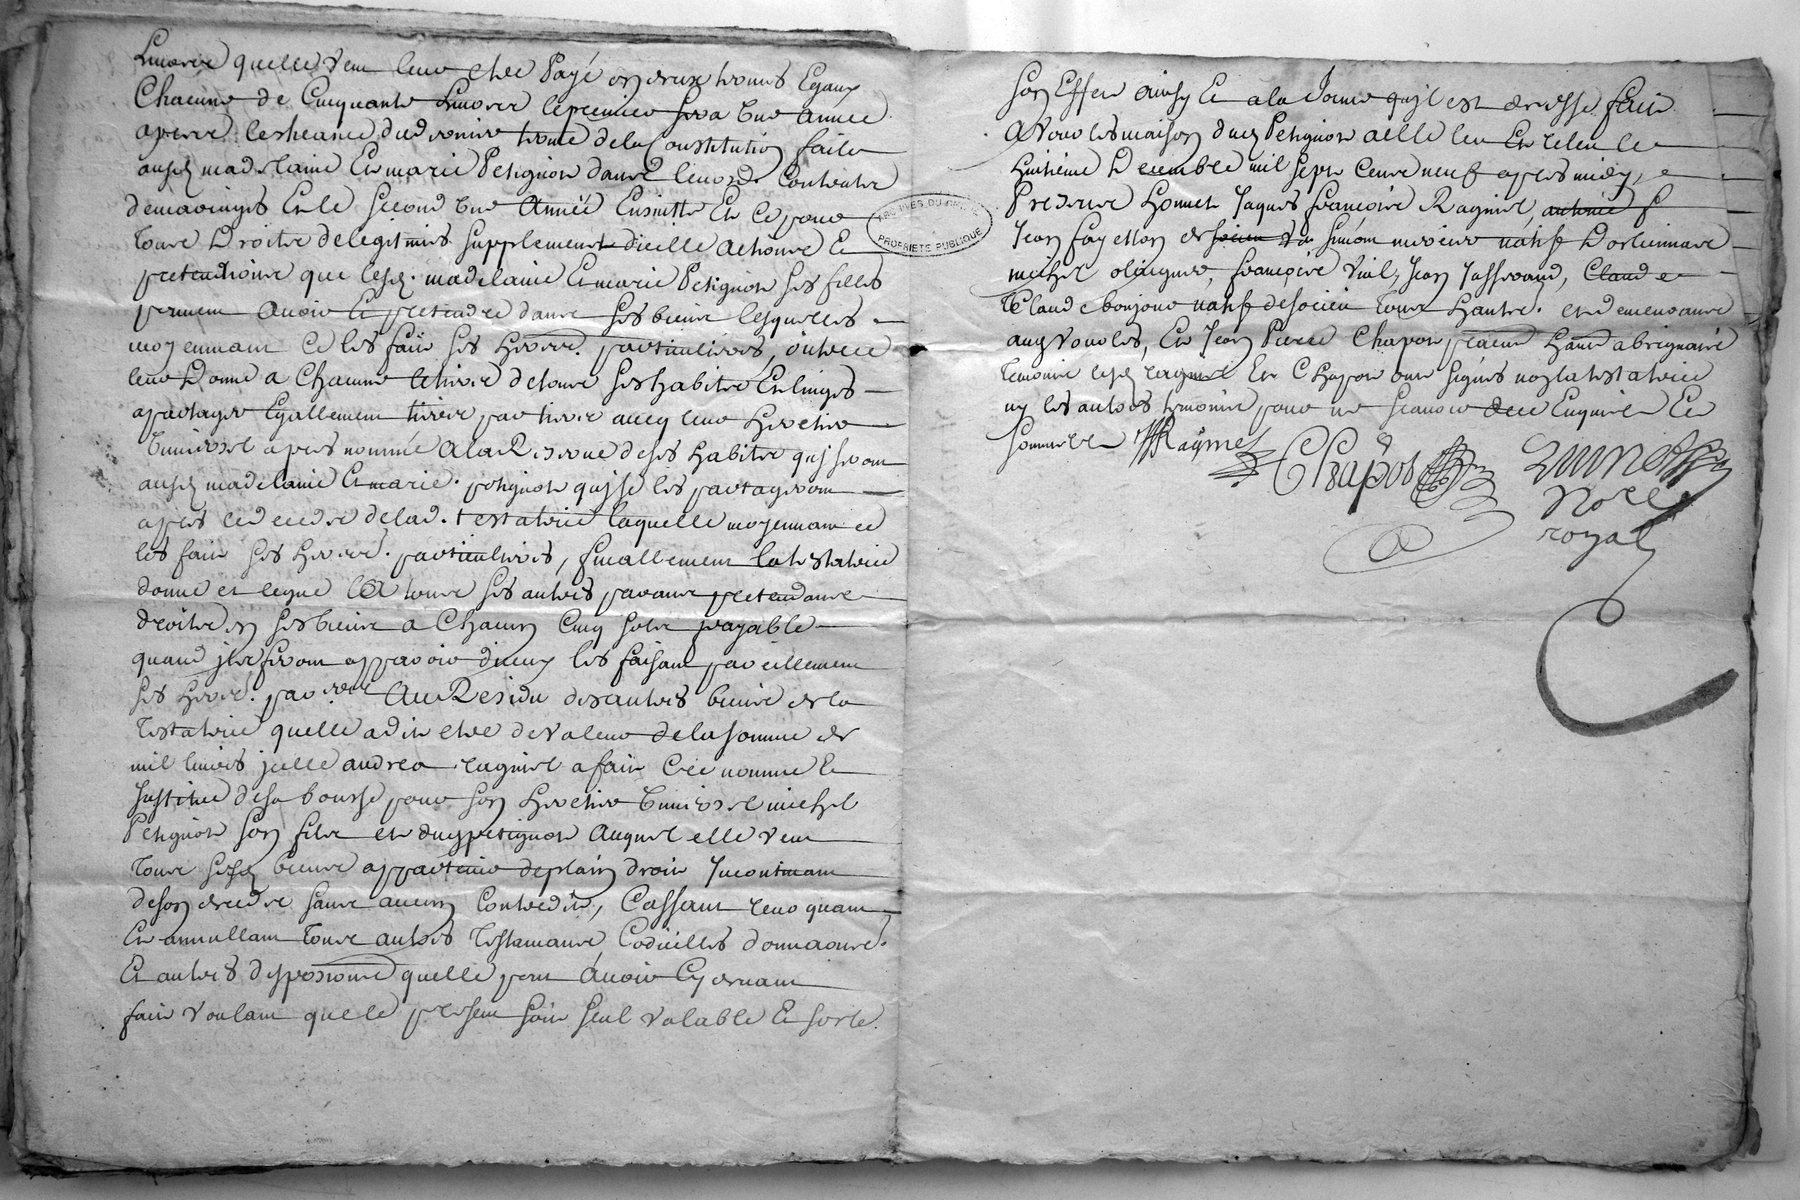 quelle veut leur etre payé en deux termes Egaux
Chacune de Cinquante livres le premier sera une année
apres lesheance du dernier terme dela Constitution faite
ausd madelaine Et marie Petignot dans leurs Contrats
de mariages Et le second une Année Ensuitte Et ce pour
tous Droits de legitimes supplement dicelle Et
pretentions que lesd. madelaine Et marie Petignot ses filles
peuvent Avoir Et pretendre dans ses biens lesquelles
moyennant ce les fait ses heres. particulieres, outre ce
leur Donne a Chacune le tiers de tous ses habits Et linges
a partager Egallement tiers par tiers avec leur heretier
universel apres nommé A la Reserve de ses habits quj seront
ausd madelaine Et marie petignot quj se les partageront
apres le deceds de lad. testatrice laquelle moyennant ce
les fait ses heres. particulieres, finallement la testatrice
donne et legue a tous ses autres parans pretendans
droits en ses biens a Chacun Cinq sols payable
quand jls feront apparoir diceux les faisant pareillement
ses heres. par.res Au Residu des autres biens de la
testatrice quelle a dit etre de valeur de la somme de
mil livres jcelle andrea raynier a fait Créé nommé Et
Institué de sa bouche pour son heretier universel michel
Petignot son fils et dud petignot Auquel elle veut
tous sesd biens appartenir de plain droit Incontinant
de son deceds sans aucun Contredit, Cassant revoquant
Et annullant tous autres testamants Codicilles donnaons.
Et autres disposions quelle peut Avoir Cy devant
fait voulant que le present soit seul valable Et sorte
son Effet ainsy Et a la forme quil est dressé fait
A vourles maison dud Petignot a elle leu Et releu le
huitieme Decembre mil sept Cents neuf apres midy,
Presens honnet Jaques françois Raynier, antoine f
Jean fayetton de Simon natif
michel françois vial, Jean Jasserand, Claude
Claude bonjour natif de tous habts. et demeurans
aud vourles, Et Jean Pierre Chapot habt a brignais
temoins lesd raynier Et Chapot ont signés non la testatrice
ny les autres temoins pour ne scavoir de ce Enquis Et
sommés
Raynier Chapot
Nore
royal
ARCHIVES DU RHÔNE
PROPRIÉTÉ PUBLIQUE